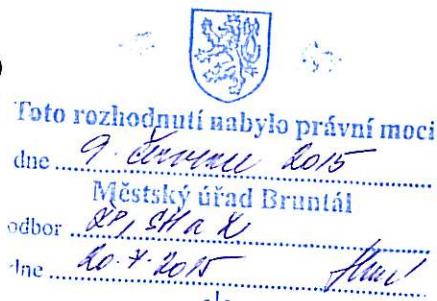 Toto rozhodnutí nabylo právní moci
dne 9. července 2015
Městský úřad Bruntál
odbor
dne 20.7.2015